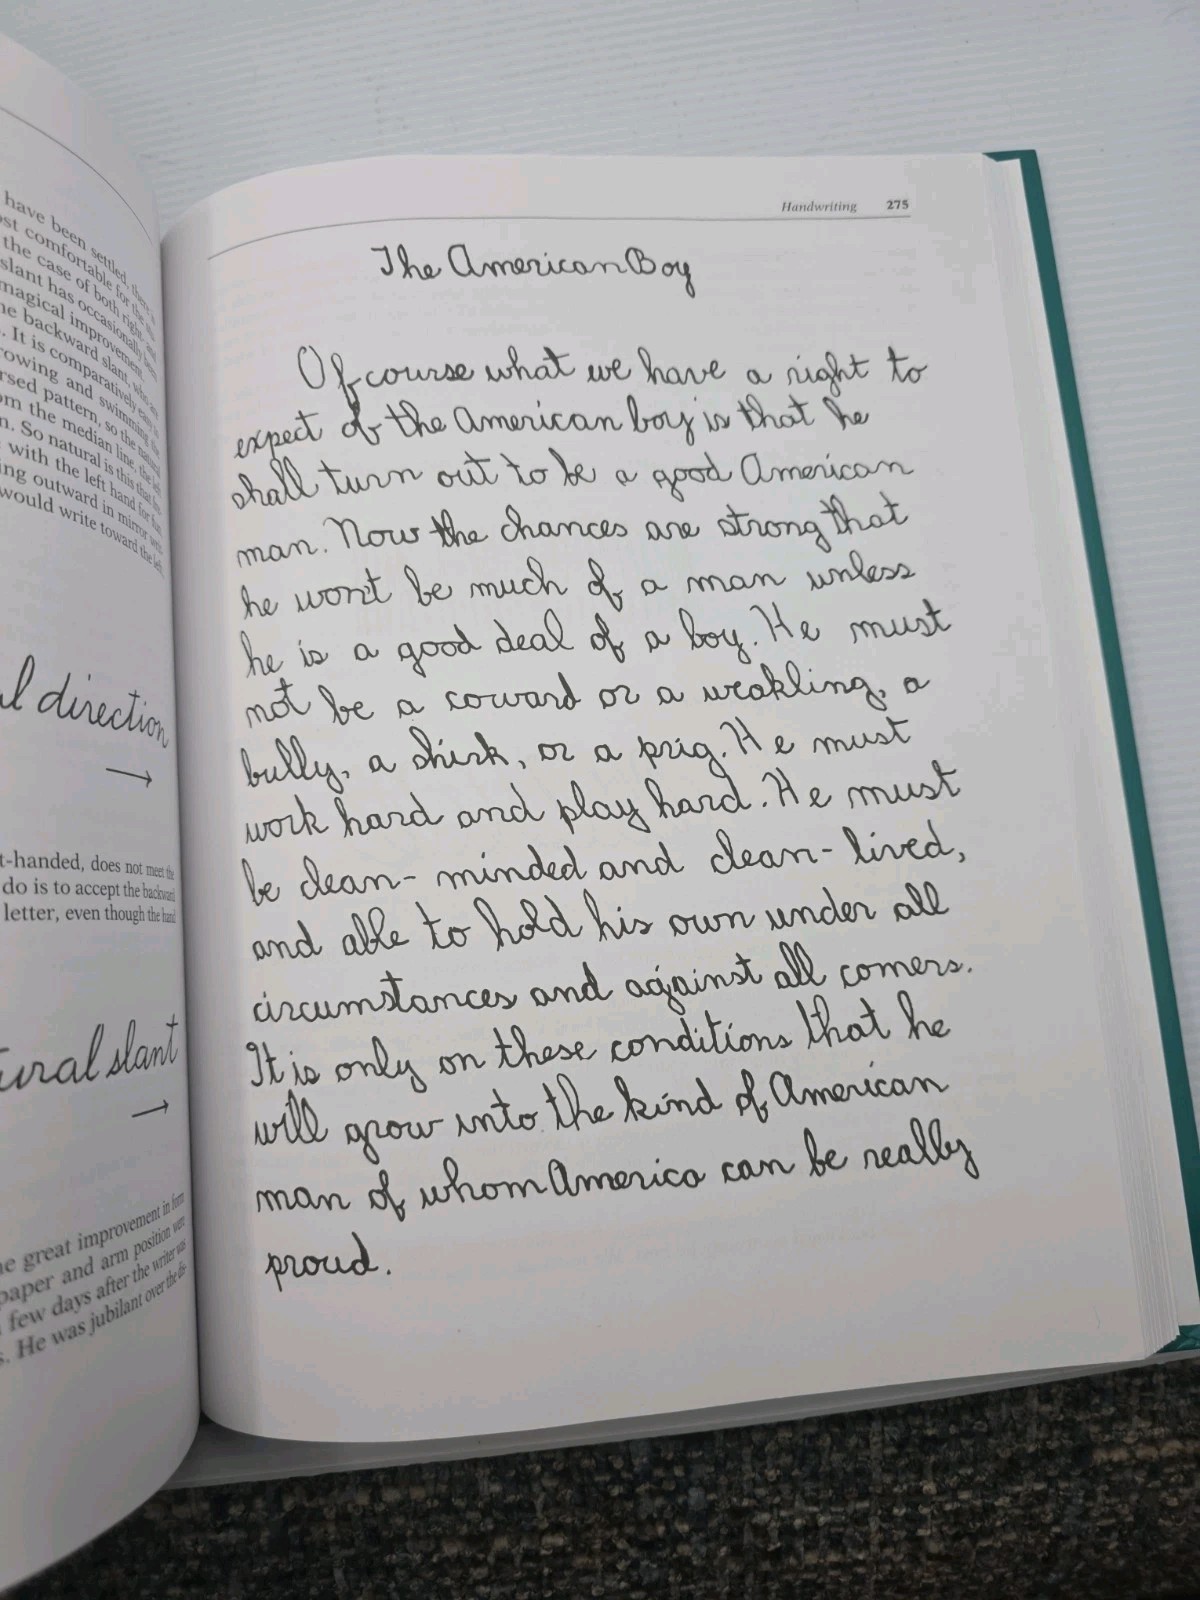 have been settled, there is
ost comfortable for the
the case of both right- and
slant has occasionally been
magical improvement
he backward slant, who are
. It is comparatively easy
rowing and swimming the
rsed pattern, so the natural
om the median line, the left
n. So natural is this that
with the left hand for
ing outward in mirror
would write toward the left.
al direction
→
t-handed, does not meet the
do is to accept the backward
letter, even though the hand
ural slant
→
he great improvement in form
paper and arm position were
few days after the writer was
s. He was jubilant over the dis-
Handwriting 275
The American Boy
Of course what we have a right to
expect of the American boy is that he
shall turn out to be a good American
man. Now the chances are strong that
he won't be much of a man unless
he is a good deal of a boy. He must
not be a coward or a weakling, a
bully, a shirk, or a prig. He must
work hard and play hard. He must
be clean-minded and clean-lived,
and able to hold his own under all
circumstances and against all comers.
It is only on these conditions that he
will grow into the kind of American
man of whom America can be really
proud.